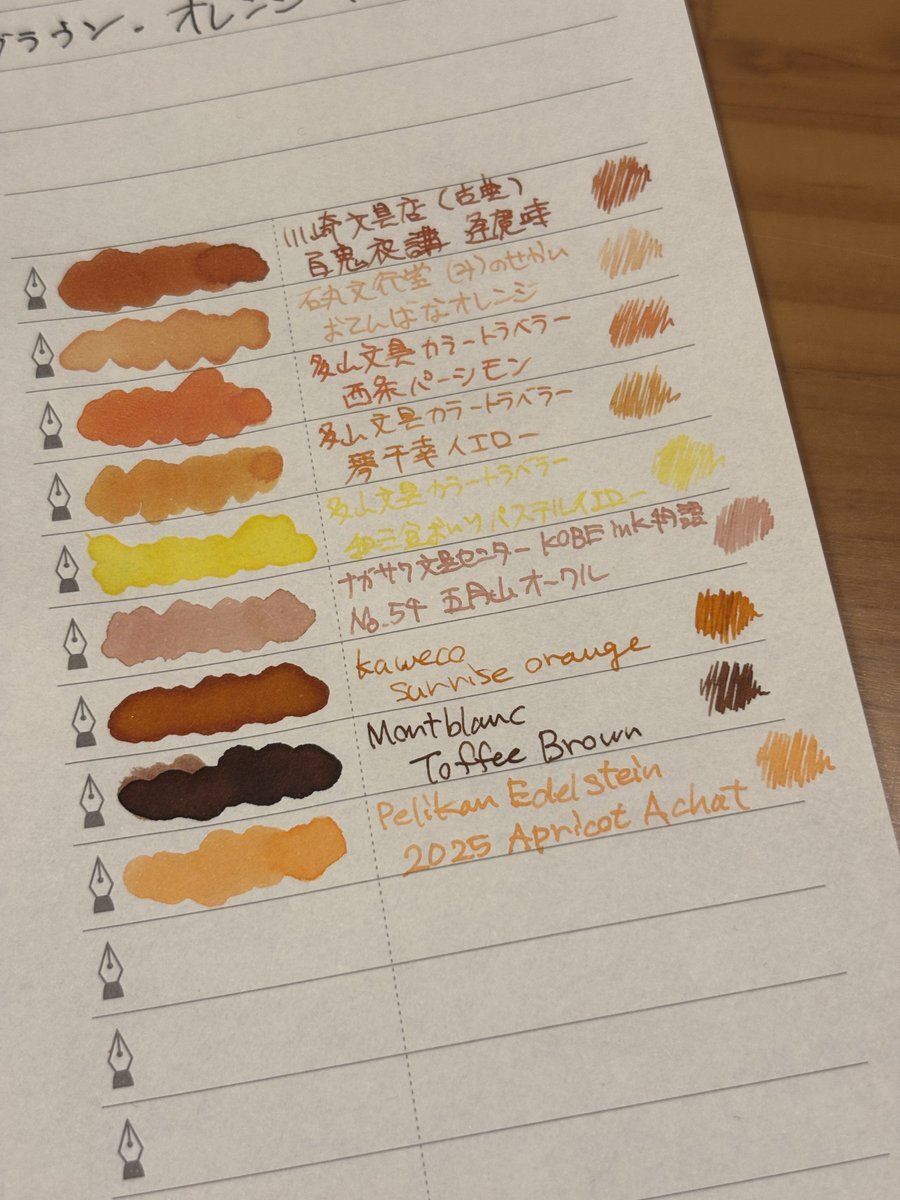 ブラウン・オレンジ
川崎文具店(古典)
百鬼夜講 逢魔時
石丸文行堂 (み)のせかい
おてんばなオレンジ
多山文具 カラートラベラー
西条パーシモン
多山文具 カラートラベラー
琴平幸イエロー
多山文具 カラートラベラー
和三宝おいり パステルイエロー
ナガサワ文具センター KOBE ink物語
No.54 五月山オークル
kaweco
sunrise orange
Montblanc
Toffee Brown
Pelikan Edelstein
2025 Apricot Achat